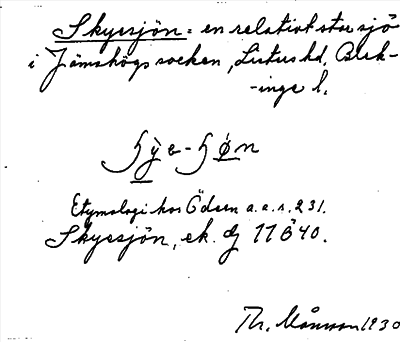 Skyesjön = en relativt stor sjö
i Jämshögs socken, Listers hd, Blek-
-inge l.
ɧỳe-ɧøn
Etymologi hos Ödeen a.a.s. 231.
Skyesjön, ek.
Th. Månsson 1930